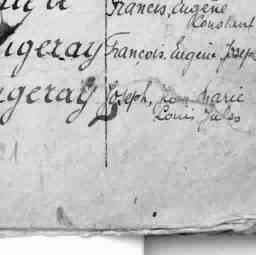 Francis, Eugène
Constant
ugeray François, Eugène Josep
ugeray Joseph, Marie
Louis Jules